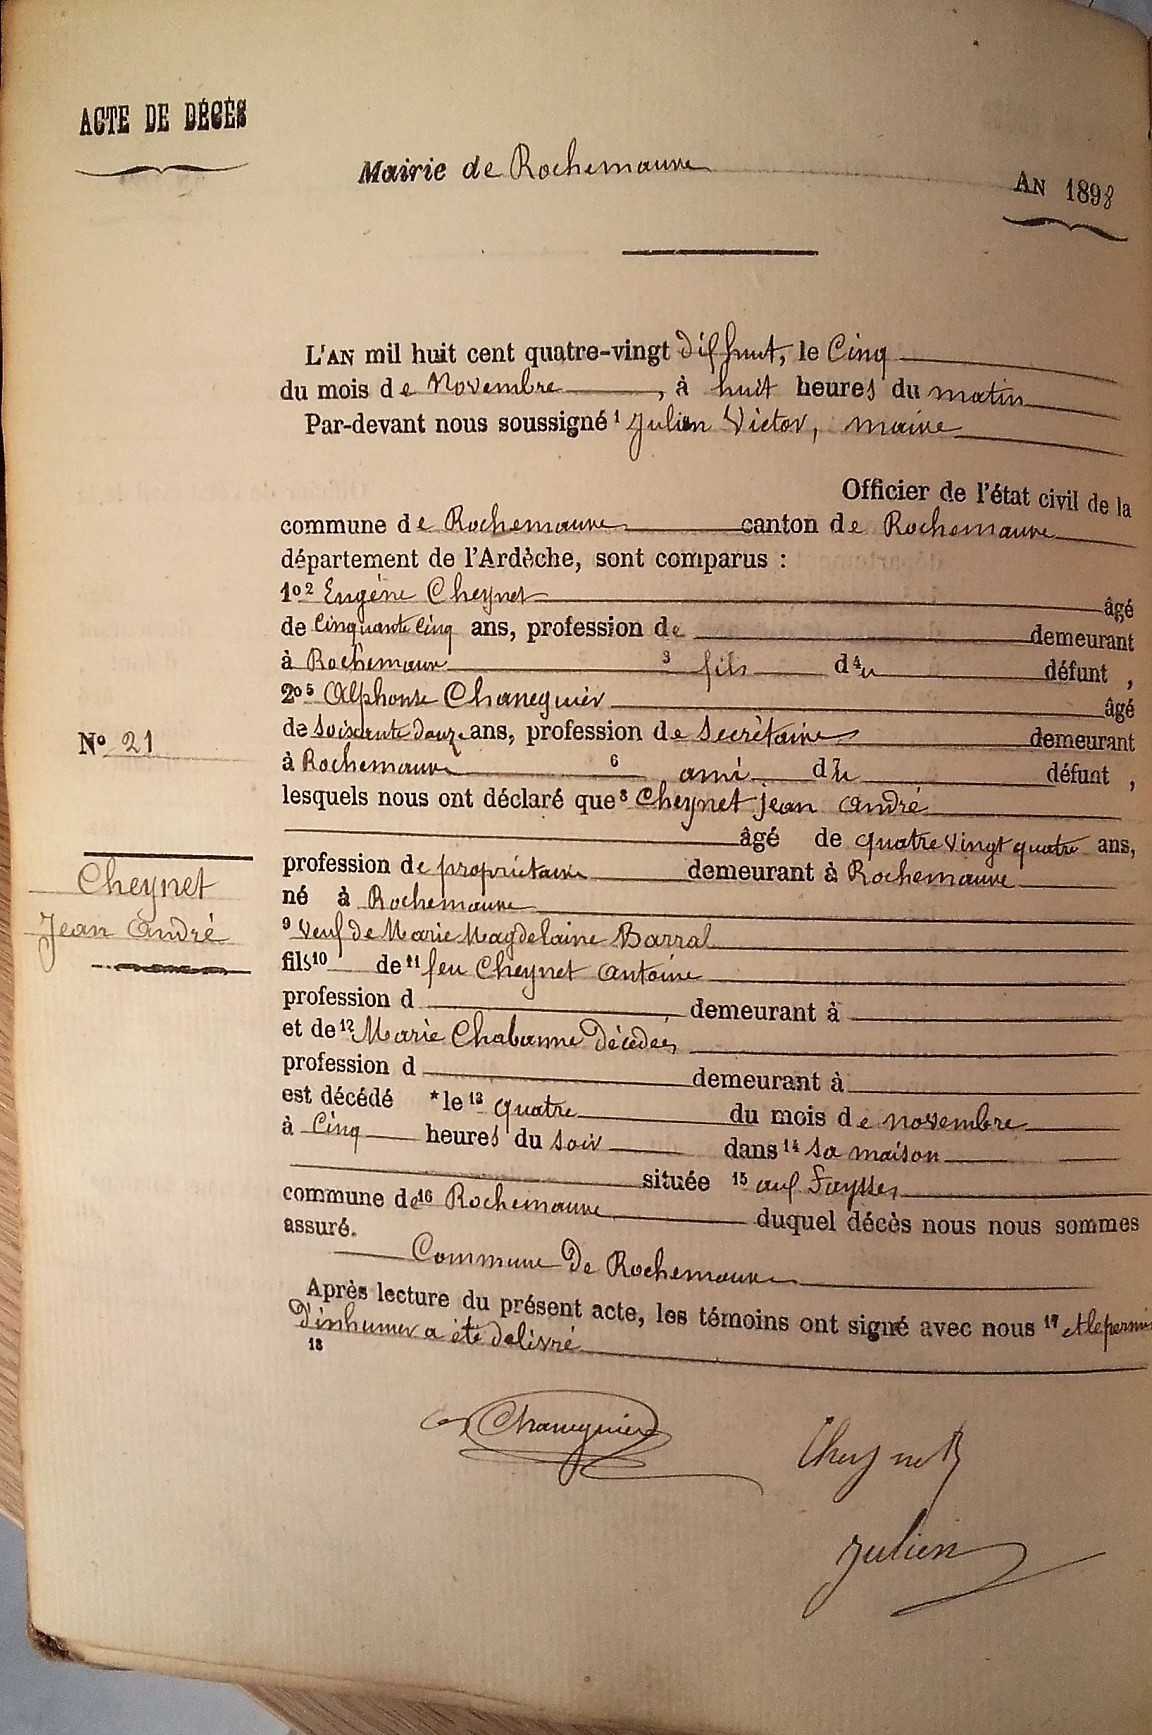 ACTE DE DÉCÈS
Mairie de Rochemaure
AN 1898
L'AN mil huit cent quatre-vingt dif huit, le Cinq
du mois de Novembre, à huit heures du matin
Par-devant nous soussigné 1 Julien Victor, maire
Officier de l'état civil de la
commune de Rochemaure canton de Rochemaure
département de l'Ardèche, sont comparus :
1o 2 Eugène Cheynet âgé
de Cinquante Cinq ans, profession de demeurant
à Rochemaure 3 fils d4u défunt ,
2o 5 Alphonse Chareguier âgé
de soixante douze ans, profession de Secrétaire demeurant
à Rochemaure 6 ami du défunt ,
No 21
lesquels nous ont déclaré que 8 Cheynet jean andré
âgé de quatre vingt quatre ans,
Cheynet
Jean André
profession de propriétaire demeurant à Rochemaure
né à Rochemaure
9 Veuf de Marie Magdelaine Barral
fils 10 de 11 feu Cheynet antoine
profession d , demeurant à
et de 12 Marie Chabanne Décédés
profession d demeurant à
est décédé * le 13 quatre du mois de novembre
à Cinq heures du soir dans 14 sa maison
située 15 auf Faysses
commune de 16 Rochemaure duquel décès nous nous sommes
assuré.
Commune de Rochemaure
Après lecture du présent acte, les témoins ont signé avec nous 17 et le permis
D'inhumer a été délivré
18
Chareguier
Cheynet
Julien